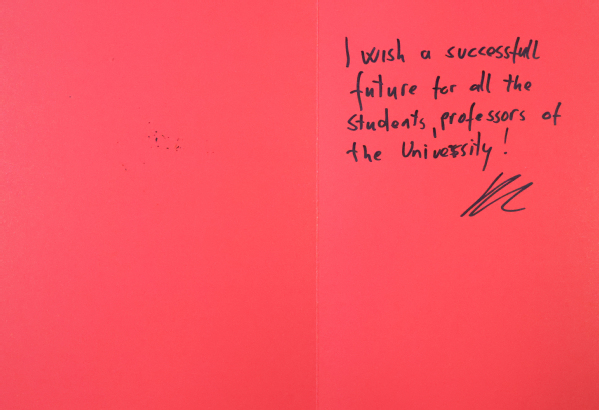 I wish a successfull
future for all the
students, professors of
the University!